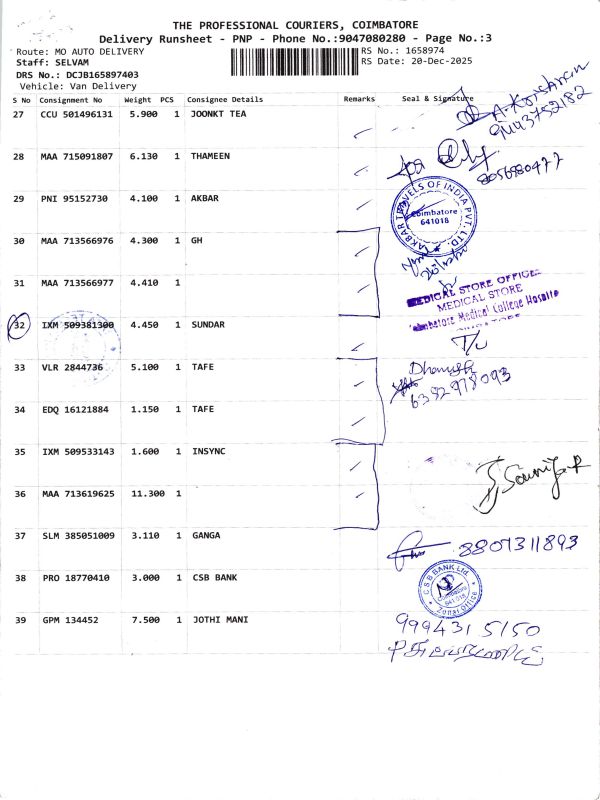 THE PROFESSIONAL COURIERS, COIMBATORE
Delivery Runsheet - PNP - Phone No.:9047080280 - Page No.:3
Route: MO AUTO DELIVERY
RS No.: 1658974
Staff: SELVAM
RS Date: 20-Dec-2025
DRS No.: DCJB165897403
Vehicle: Van Delivery
S No Consignment No Weight PCS Consignee Details Remarks Seal & Signature
27 CCU 501496131 5.900 1 JOONKT TEA
9443752182
28 MAA 715091807 6.130 1 THAMEEN
8056980477
29 PNI 95152730 4.100 1 AKBAR
AKBAR TRAVELS OF INDIA PVT. LTD.
Coimbatore
641018
30 MAA 713566976 4.300 1 GH
31 MAA 713566977 4.410 1
MEDICAL STORE OFFICE
MEDICAL STORE
Coimbatore Medical College Hospital
32 IXM 509381300 4.450 1 SUNDAR
33 VLR 2844736 5.100 1 TAFE
Dhanush
6382978093
34 EDQ 16121884 1.150 1 TAFE
35 IXM 509533143 1.600 1 INSYNC
36 MAA 713619625 11.300 1
37 SLM 385051009 3.110 1 GANGA
8807311893
38 PRO 18770410 3.000 1 CSB BANK
CSB BANK Ltd.
641018
Zonal Office
39 GPM 134452 7.500 1 JOTHI MANI
9994315150